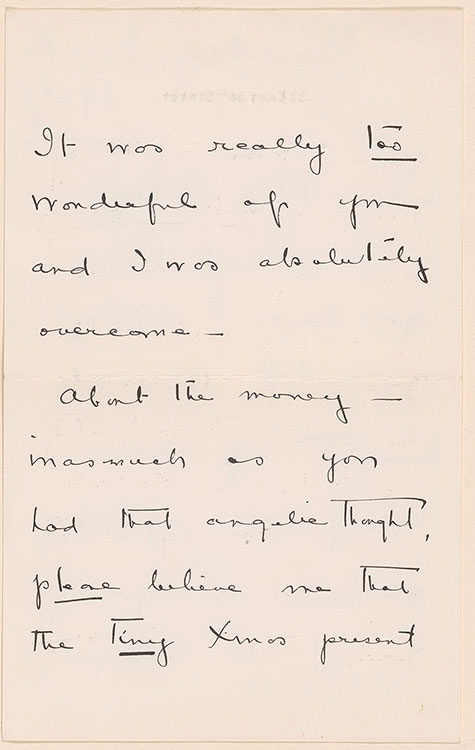 It was really too
wonderful of you
and I was absolutely
overcome —
About the money —
inasmuch as you
had that angelic thought,
please believe me that
the Tiny Xmas present